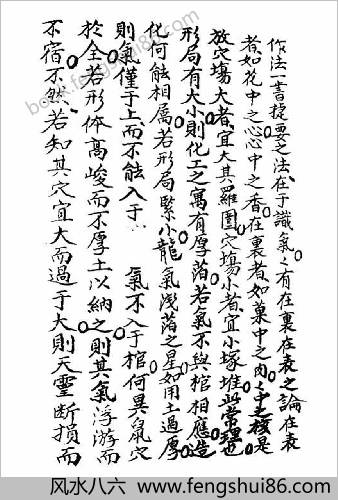 作法一書提要之法在于識氣々有在裏在表之論在表
者如花中之心心中之香在裏者如菓中之肉々中之核是
故穴塲大者宜大其羅圍穴塲小者宜小塚堆此常理也
形局有大小則化工之寓有厚薄若氣不與棺相應造
化何能相属若形局緊小龍氣淺薄之星如用土過厚
則氣僅于上而不能入于 氣不入于棺何異鼠穴
於全若形体高峻而不厚土以納之則其氣浮游而
不宿不然若知其穴宜大而過于大則天靈断損而
book.fengshui86.com
风水八六 www.fengshui86.com